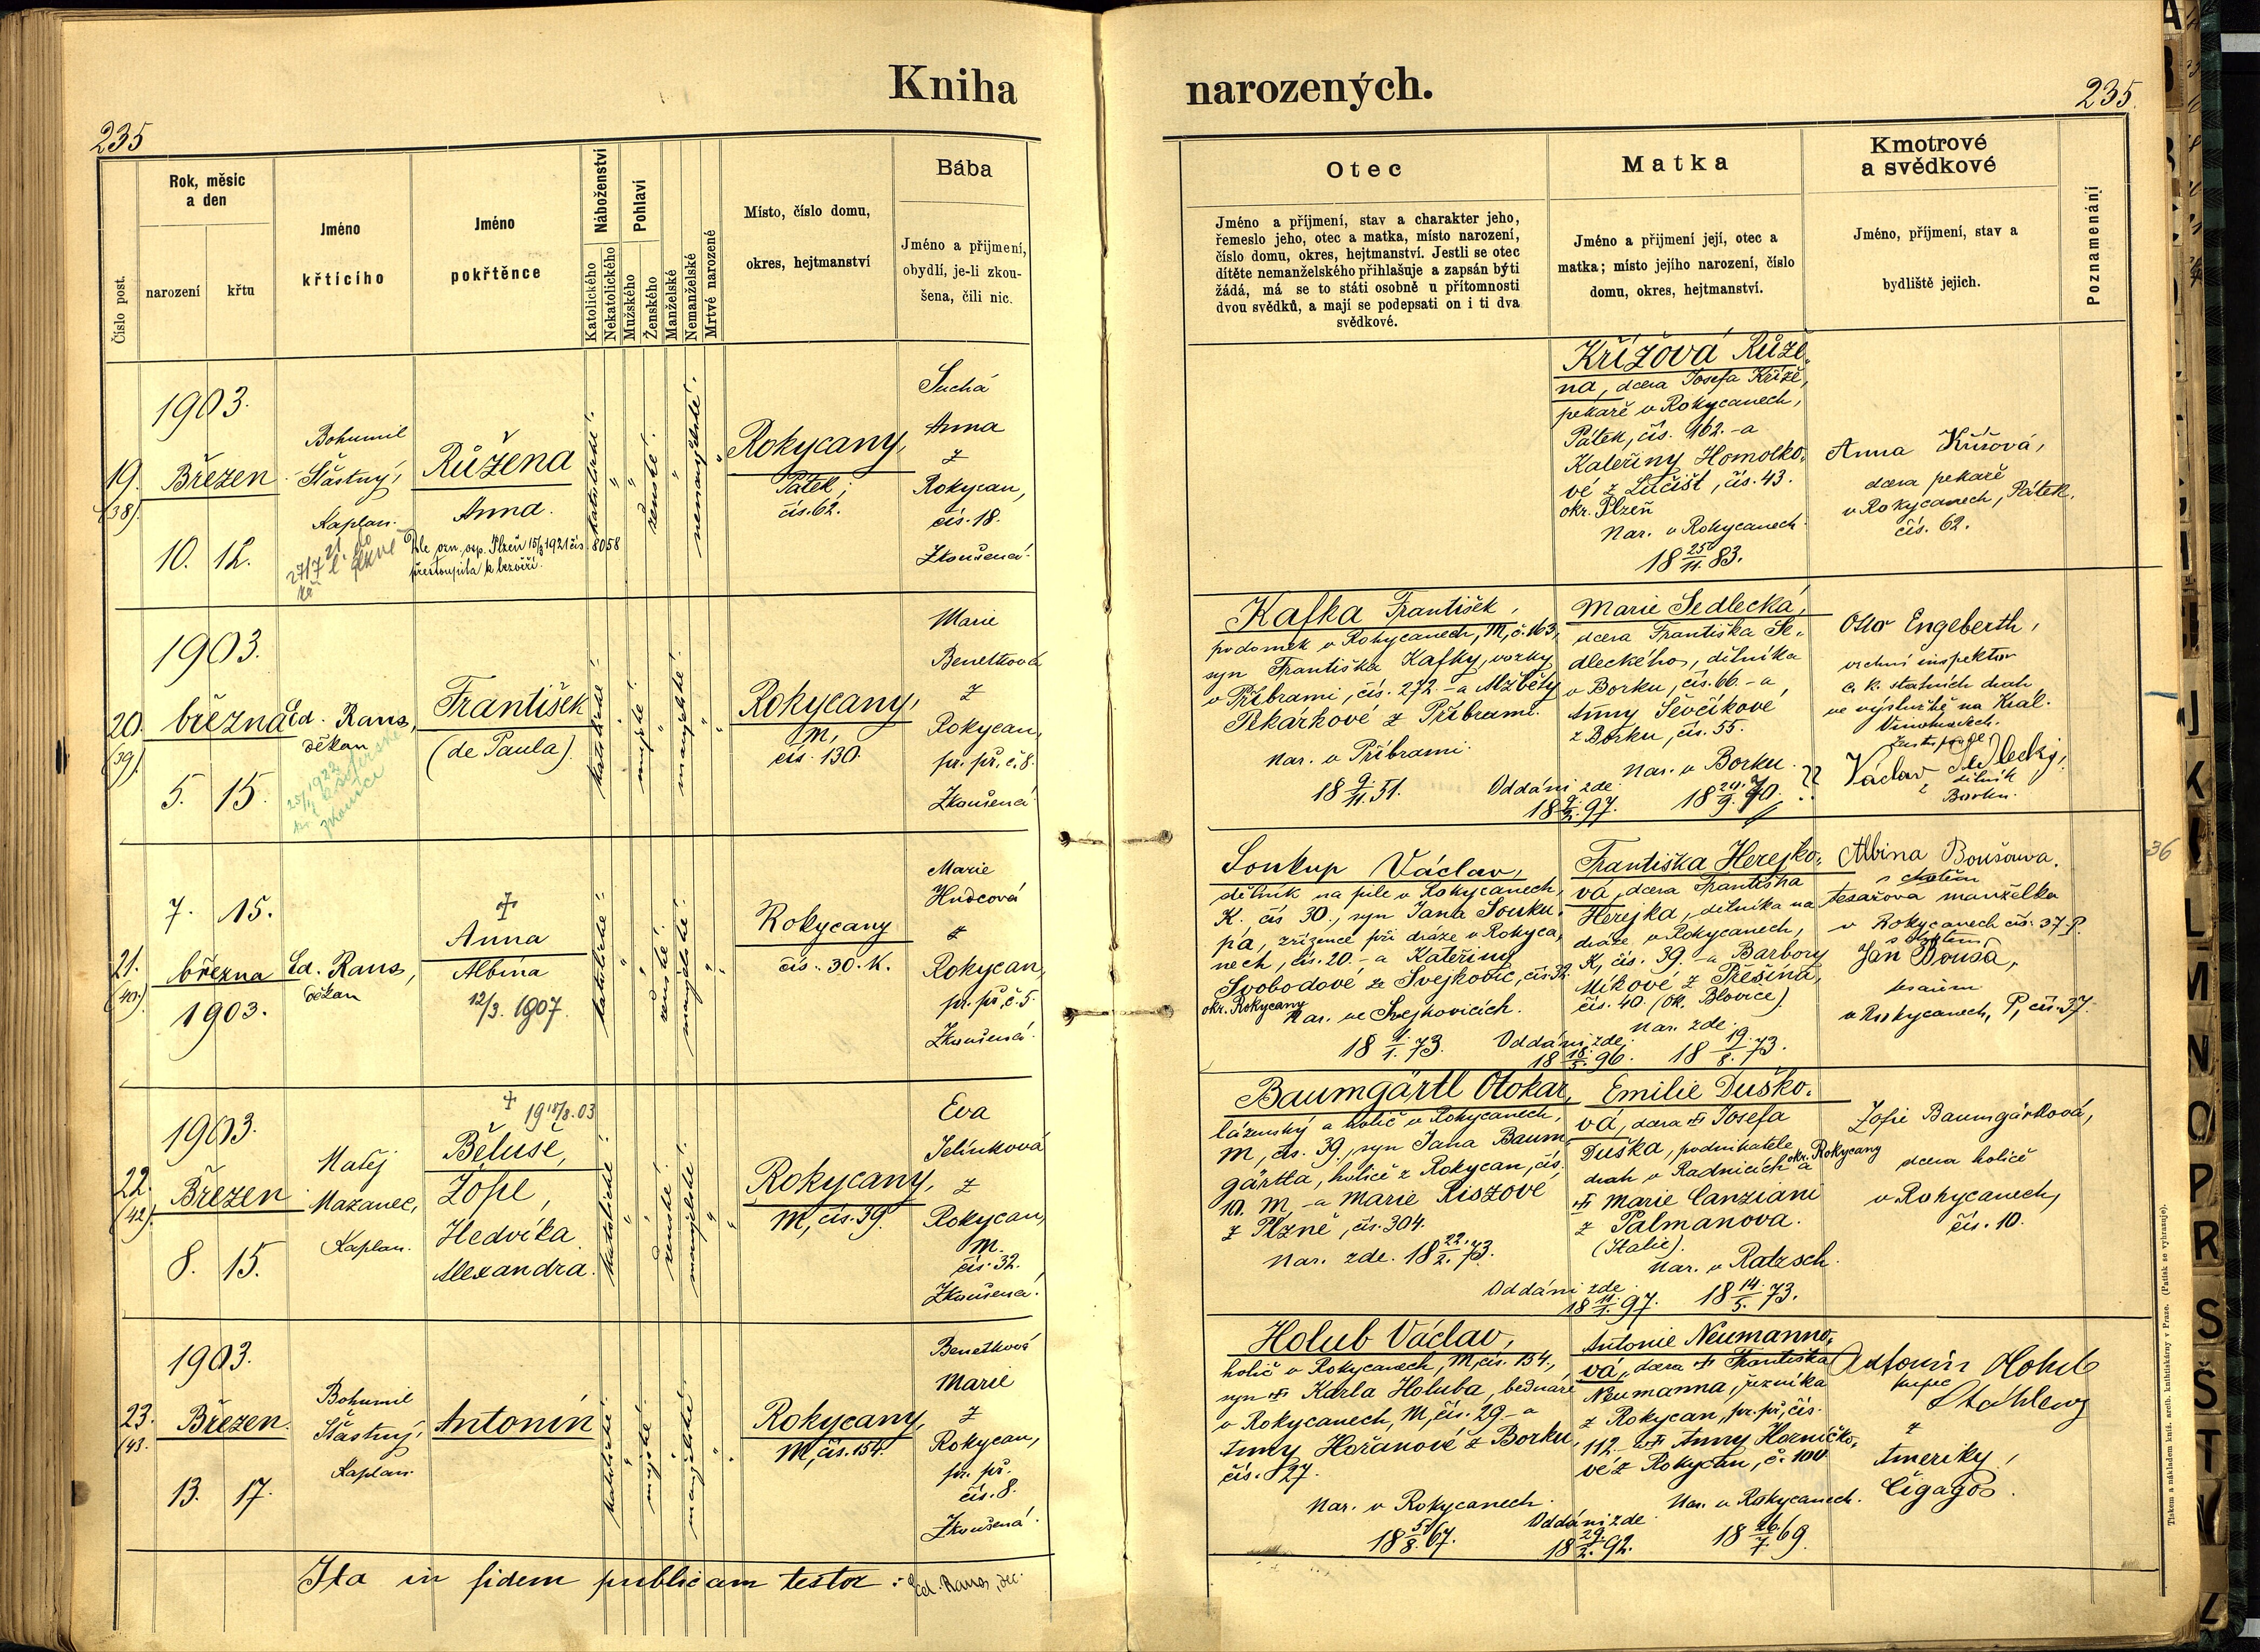 Kniha narozených.
235
235.
Číslo post.
Rok, měsíc
a den
narození
křtu
Jméno
křtícího
Jméno
pokřtěnce
Náboženství
Katolického
Nekatolického
Pohlaví
Mužského
Ženského
Manželské
Nemanželské
Mrtvě narozené
Místo, číslo domu,
okres, hejtmanství
Bába
Jméno a příjmení,
obydlí, je-li zkou-
šena, čili nic.
Otec
Jméno a příjmení, stav a charakter jeho,
řemeslo jeho, otec a matka, místo narození,
číslo domu, okres, hejtmanství. Jestli se otec
dítěte nemanželského přihlašuje a zapsán býti
žádá, má se to státi osobně u přítomnosti
dvou svědků, a mají se podepsati on i ti dva
svědkové.
Matka
Jméno a přijmení její, otec a
matka; místo jejího narození, číslo
domu, okres, hejtmanství.
Kmotrové
a svědkové
Jméno, příjmení, stav a
bydliště jejich.
Poznamenání
19.
(38).
1903.
Březen
10. 12.
Bohumil
Šťastný,
Kaplan.
Růžena
Anna.
Dle ozn. osp. Plzeň 15/3 1921 čís. 8058
přestoupila k bezvěří.
katolické
ženské
nemanželské
Rokycany,
Pátek,
čís. 62.
Suchá
Anna
z
Rokycan,
čís. 18.
Zkoušená.
Křížová Růže-
na, dcera Josefa Kříže,
pekaře v Rokycanech,
Pátek, čís. 162. a
Kateřiny Homolko-
vé z Lučišť, čís. 43.
okr. Plzeň
Nar. v Rokycanech
18 25/11. 83.
Anna Křížová,
dcera pekaře
v Rokycanech, Pátek,
čís. 62.
20.
(39).
1903.
března
5. 15.
Ed. Rans,
děkan
František
(de Paula).
katolické
mužské
manželské
Rokycany,
M,
čís. 130.
Marie
Benetková
z
Rokycan,
pr. př. č. 8.
Zkoušená.
Kafka František,
podomek v Rokycanech, M, č. 163,
syn Františka Kafky, vozky
v Příbrami, čís. 272. a Alžběty
Pekárkové z Příbrami.
Nar. v Příbrami.
18 9/11. 51.
Oddáni zde
18 9/2. 97.
Marie Sedlecká,
dcera Františka Se-
dleckého, dělníka
v Borku, čís. 66. a
Anny Ševčíkové
z Borku, čís. 55.
Nar. v Borku.
18 20/9. 70.
Otto Engeberth,
vrchní inspektor
c. k. státních drah
ve výslužbě na Král.
Vinohradech.
Václav Sedlecký,
dělník
z Borku.
21.
(40.)
7. 15.
března
1903.
Ed. Rans,
děkan
Anna
Albína
12/3. 1907.
katolické
ženské
manželské
Rokycany
čís. 30. K.
Marie
Hudcová
z
Rokycan,
pr. př. č. 5.
Zkoušená.
Soukup Václav,
dělník na pile v Rokycanech,
K. čís 30., syn Jana Souku-
pa, zřízence při dráze v Rokyca-
nech, čís. 20. a Kateřiny
Svobodové ze Svejkovic, čís. 32.
okr. Rokycany
Nar. ve Svejkovicích.
18 1/1. 73.
Oddáni zde
18 18/5. 96.
Františka Herejko-
vá, dcera Františka
Herejka, dělníka na
dráze v Rokycanech,
K, čís. 39. a Barbory
Míkové z Přešína,
čís. 40. (ok. Blovice)
Nar. zde.
18 19/8. 73.
Albina Boušova.
tesařova manželka
v Rokycanech čís. 37. P.
Jan Bouša,
tesařem
v Rokycanech, P, čís. 37.
36
22.
(42).
1903.
Březen
8. 15.
Matěj
Mazanec,
Kaplan.
19 18/8. 03
Běluše,
Žofie,
Hedvika
Alexandra.
katolické
ženské
manželské
Rokycany,
M, čís. 39.
Eva
Jelínková
z
Rokycan,
M.
čís. 32.
Zkoušená.
Baumgärtl Otokar,
lázeňský a holič v Rokycanech,
M, čís. 39., syn Jana Baum-
gärtla, holiče z Rokycan, čís.
10. M, a Marie Riszové
z Plzně, čís. 304.
Nar. zde. 18 22./2. 73.
Oddáni zde
18 11./1. 97.
Emilie Duško-
vá, dcera Josefa
Duška, podnikatele
drah v Radnicích okr. Rokycany a
Marie Canziani
z Palmanova.
(Italie).
Nar. v Ratzsch.
18 14./5. 73.
Žofie Baumgärtlová,
dcera holiče
v Rokycanech,
čís. 10.
23.
(43.
1903.
Březen.
13. 17.
Bohumil
Šťastný,
Kaplan.
Antonín
katolické
mužské
manželské
Rokycany,
M, čís. 154.
Benetková
Marie
z
Rokycan,
pr. př.
čís. 8.
Zkoušená.
Holub Václav,
holič v Rokycanech, M, čís. 154.,
syn Karla Holuba, bednáře
v Rokycanech, M, čís. 29. a
Anny Hořanové z Borku,
čís. 27.
Nar. v Rokycanech.
18 5/8. 67.
Oddáni zde
18 29./2. 92.
Antonie Neumanno-
vá, dcera Františka
Neumanna, řezníka
z Rokycan, pr. př., čís.
112. Anny Horničko-
vé z Rokycan, č. 100
Nar. v Rokycanech.
18 26./7. 69.
Antonín Holub
kupec
z
Ameriky,
Čigago.
Ita in fidem publicam testor: Ed. Rans, dec.
Tiskem a nákladem kníž. arcib. knihtiskárny v Praze. (Patisk se vyhrazuje).
A
B
I
J
K
L
M
N
O
P
R
S
Š
T
V
Z